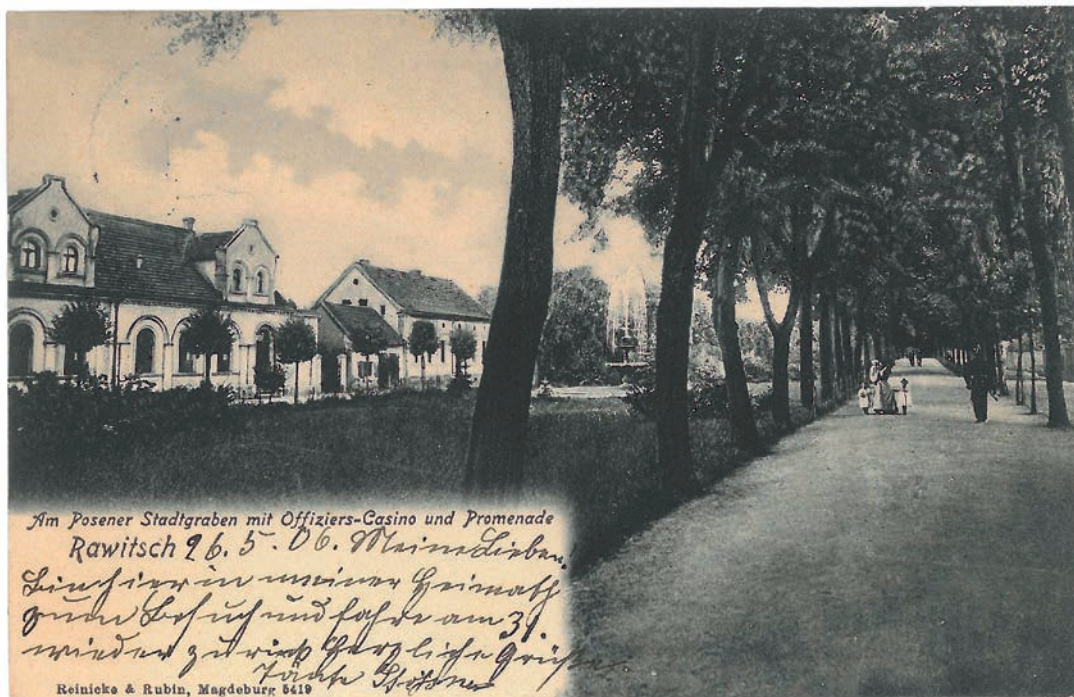 Am Posener Stadtgraben mit Offiziers-Casino und Promenade
Rawitsch 26. 5. 06. Meine Lieben!
Bin hier in meiner Heimath
zum Besuch und fahre am 31.
wieder zurück herzliche Grüße
Tante
Reinicke & Rubin, Magdeburg 5419